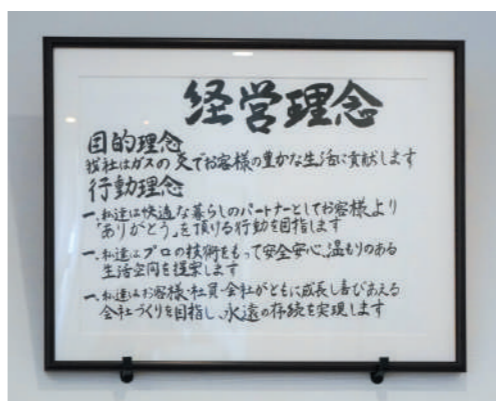 経営理念
目的理念
我社はガスの炎でお客様の豊かな生活に貢献します
行動理念
一、私達は快適な暮らしのパートナーとしてお客様より
「ありがとう」を頂ける行動を目指します
一、私達はプロの技術をもって安全安心、温もりのある
生活空間を提案します
一、私達はお客様・社員・会社がともに成長し喜びあえる
会社づくりを目指し、永遠の存続を実現します